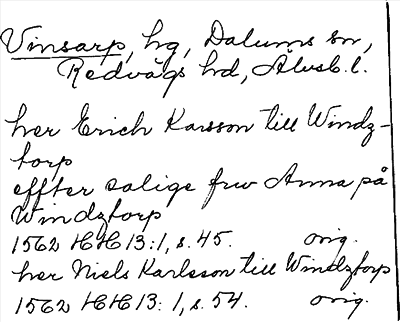 Vinsarp, hg, Dalums sn,
Redvägs hd, Älvsb. l.
her Erich Karsson till Windz-
torp
effter salige frw Anna på
Windztorp
1562 HH 13:1, s. 45. orig.
her Niels Karlsson till Windztorp
1562 HH 13:1, s. 54. orig.